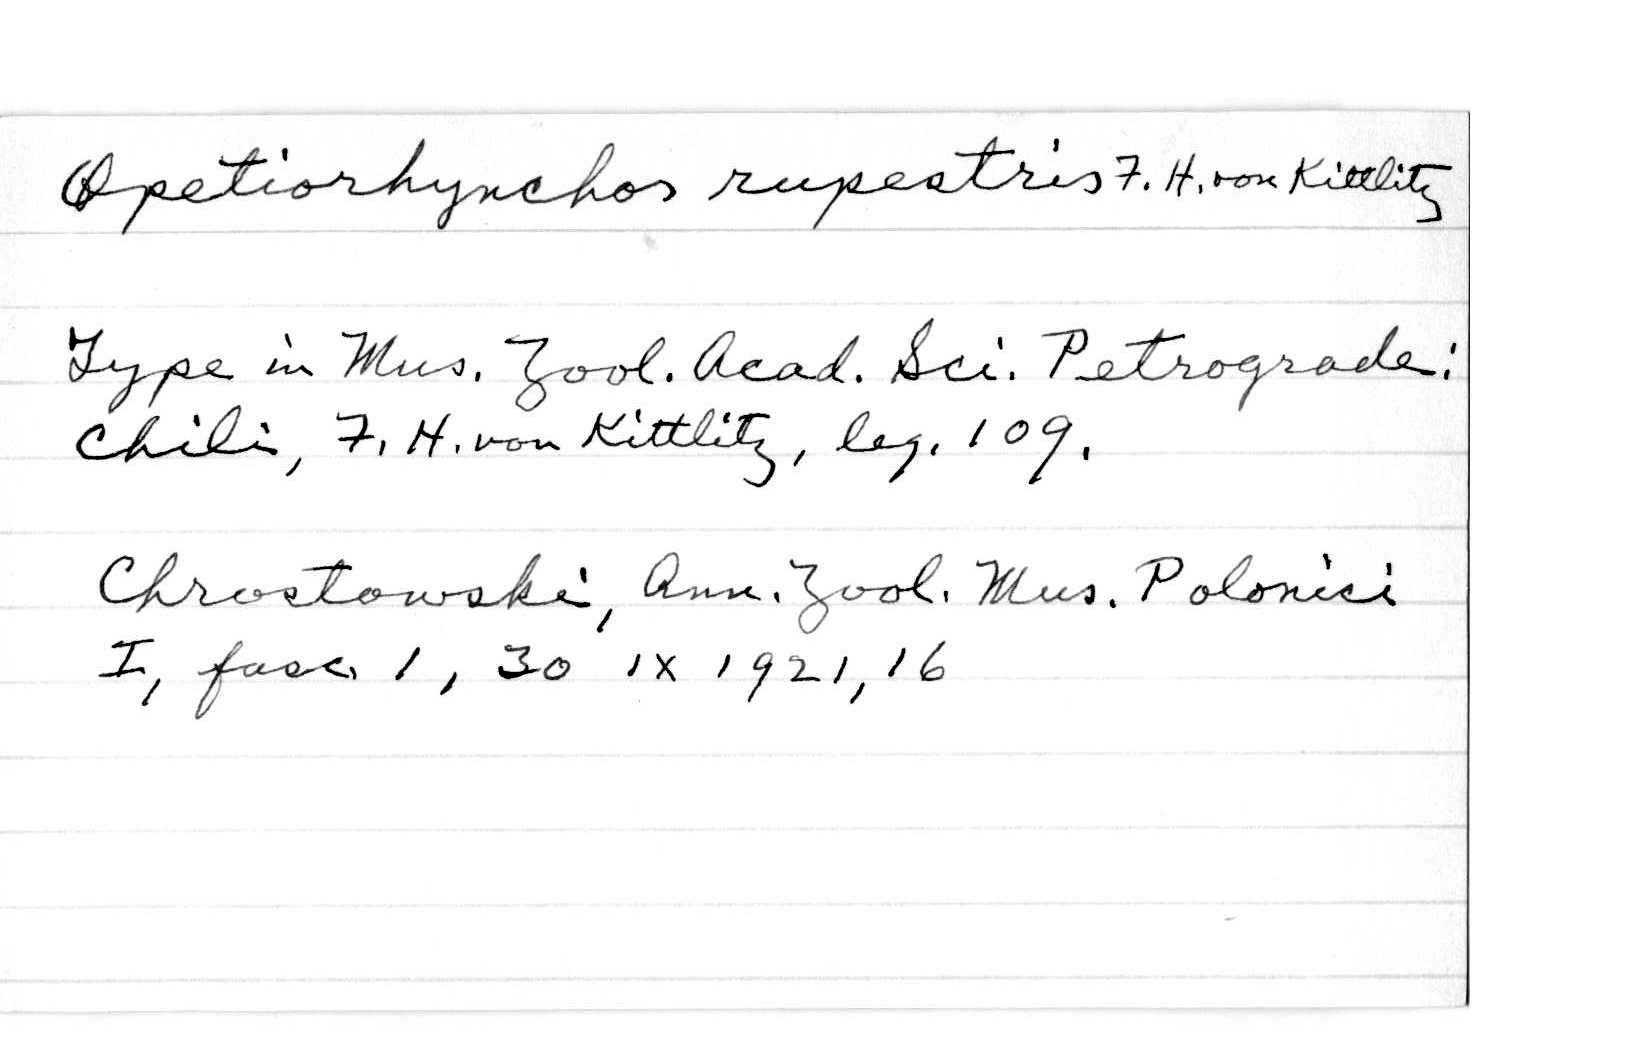 Opetiorhynchos rupestris F. H. von Kittlitz
Type in Mus. Zool. Acad. Sci. Petrograde:
Chili, F. H. von Kittlitz, leg. 109.
Chrostowski, Ann. Zool. Mus. Polonici
I, fasc. 1, 30 IX 1921, 16